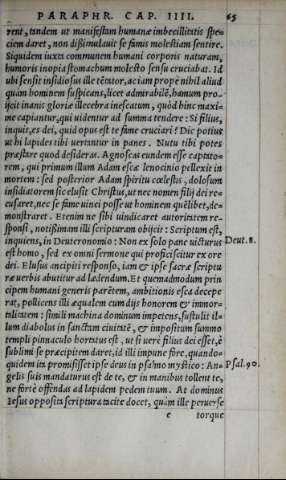 PARAPHR. CAP. IIII. 65
reret, tandem ut manifestam humanæ imbecillitatis spe-
ciem daret, non dißimulauit se famis molestiam sentire.
Siquidem iuxta communem humani corporis naturam,
humoris inopia stomachum molesto sensu cruciabat. Id
ubi sensit insidiosus ille tẽtator, ac iam prope nihil aliud
quàm hominem suspicans, licet admirabilẽ, hamum pro-
ijcit inanis gloriæ illecebra inescatum, quòd hinc maxi-
me capiantur, qui uidentur ad summa tendere: Si filius,
inquis, es dei, quid opus est te fame cruciari? Dic potius
ut hi lapides tibi uertantur in panes. Nutu tibi potes
præstare quod desideras. Agnoscas eundem esse captato-
rem, qui primum illum Adam escæ lenocinio pellexit in
mortem: sed posterior Adam spiritu cœlesti, dolosum
insidiatorem sic elusit Christus, ut nec nomen filij dei re-
cusaret, nec se fame uinci posse ut hominem quẽlibet, de-
monstraret. Etenim ne sibi uindicaret autoritatem re-
sponsi, notißimam illi scripturam obijcit: Scriptum est,
inquiens, in Deuteronomio: Non ex solo pane uicturus Deut. 8.
est homo, sed ex omni sermone qui proficiscitur ex ore
dei. Elusus ancipiti responso, iam & ipse sacræ scriptu
ræ uerbis abutitur ad lædendum. Et quemadmodum prin
cipem humani generis parẽtem, ambitionis esca decepe
rat, pollicens illi æqualem cum dijs honorem & immor-
talitatem: simili machina dominum impetens, sustulit il-
lum diabolus in sanctam ciuitatẽ, & impositum summo
templi pinnaculo hortatus est, ut si uerè filius dei esset, è
sublimi se præcipitem daret, id illi impune fore, quando-
quidem ita promisisset ipse deus in psalmo mystico: An- Psal. 90.
gelis suis mandaturus est de te, & in manibus tollent te,
ne fortè offendas ad lapidem pedem tuum. At dominus
Iesus opposita scriptura tacitè docet, quàm ille peruersè
e torque